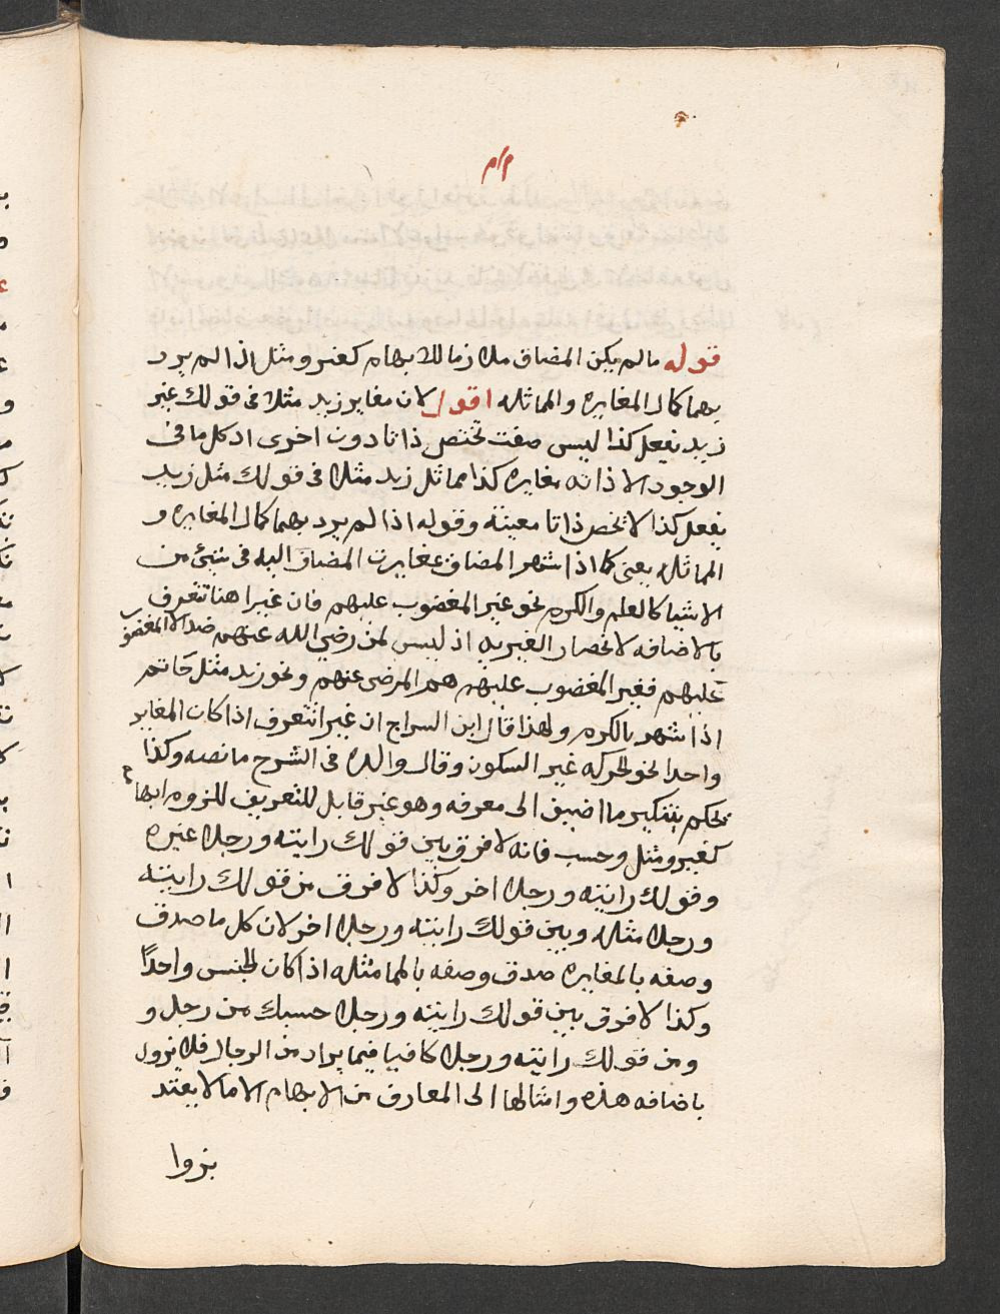 قوله مالم يكن المضاف ملازما للابهام كغير ومثل اذا لم يرد
بهما كمال المغايره والمماثله اقول لان مغاير زيد مثلا فى قولك غير
زيد يفعل كذا ليس صفت تختص ذاتا دون اخرى اذ كل ما فى
الوجود الا ذاته مغايره كذا مماثل زيد مثلا فى قولك مثل زيد
يفعل كذا لا يخص ذاتا معينه وقوله اذا لم يرد بهما كمال المغايره و
المماثله يعنى كما اذا شهر المضاف بمغايرت المضاف اليه فى شىء من
الاشيا كالعلم والكرم نحو غير المغضوب عليهم فان غيرا هنا تتعرف
بالاضافه لانحصار الغيريه اذ ليس لمن رضي الله عنهم ضد الا المغضوب
عليهم فغير المغضوب عليهم هم المرضى عنهم ونحو زيد مثل حاتم
اذا شهر بالكرم ولهذا قال ابن السراج ان غيرا تتعرف اذا كان المغاير
واحدا نحو الحركه غير السكون وقال والده فى الشرح ما نصه وكذا
يحكم بتنكير ما اضيف الى معرفه وهو غير قابل للتعريف للزوم ابهامه
كغير ومثل وحسب فانه لا فرق بين قولك رايته ورجلا غيره
وقولك رايته ورجلا اخر وكذا لا فرق من قولك رايته
ورجلا مثله وبين قولك رايته ورجلا اخر لان كل ما صدق
وصفه بالمغايره صدق وصفه بالمماثله اذا كان الجنس واحدًا
وكذا لا فرق بين قولك رايته ورجلا حسبك من رجل و
ومن قولك رايته ورجلا كافيا فيما يراد من الرجال فلا يزول
باضافه هذه وامثالها الى المعارف من الابهام الا ما لا يعتد
بزوا